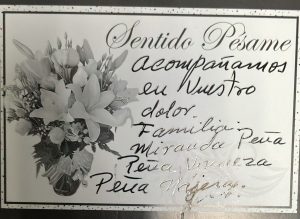 Sentido Pésame
Acompañamos
en Nuestro
dolor.
Familia.
Miranda Peña
Peña
Pena Najera.